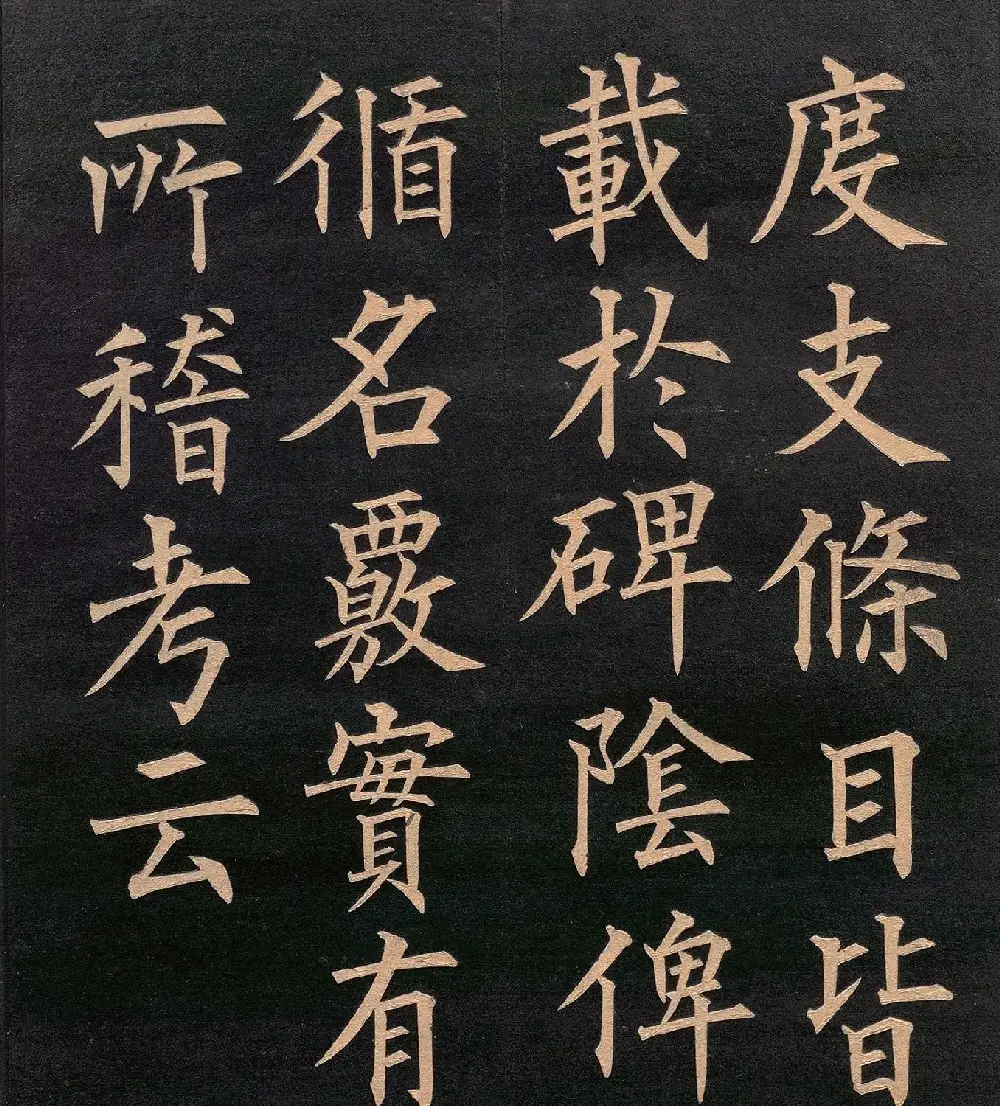 度支條目皆
載於碑陰俾
循名覈實有
所稽考云